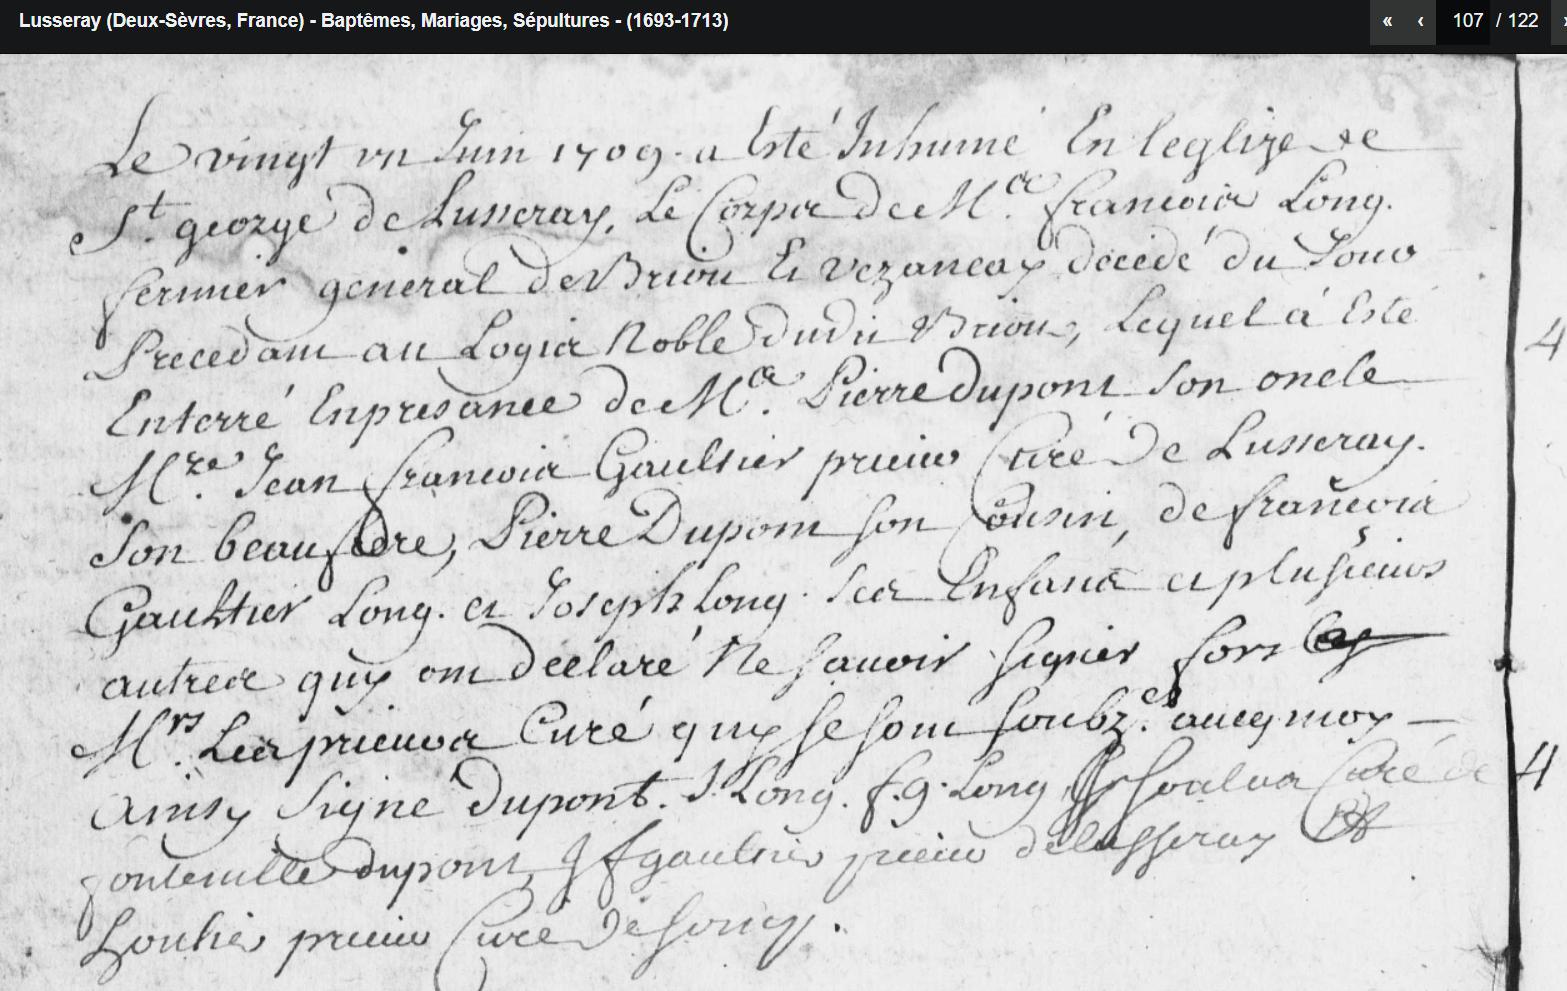 Lusseray (Deux-Sèvres, France) - Baptêmes, Mariages, Sépultures - (1693-1713)
« ‹ 107 / 122 ›
Le vingt vn Juin 1709. a Esté Inhumé En leglize de
St. george de Lusseray, Le Corps de Me. francois Long.
fermier general de Briou Et vezancay décedé du Jour
Precedant au Logis Noble dudit Briou, Lequel à Esté
Enterré Enpresance de Me. Pierre dupont son oncle
Mre. Jean francois Gaultier prieur Curé De Lusseray.
Son beaufrere, Pierre Dupont son Cousin, de francois
Gaultier Long. et Joseph Long. ses Enfans et plusieurs
autres quy ont declaré Ne sauoir signer fors
Mrs. Les prieurs Curé quy se sont soubz.es auecq moy
Ainsy Signé dupont. J. Long. f. g. Long, Curé de
fonteuille dupont, J f gaultier prieur de lusseray Et
prieur Curé De
4
4